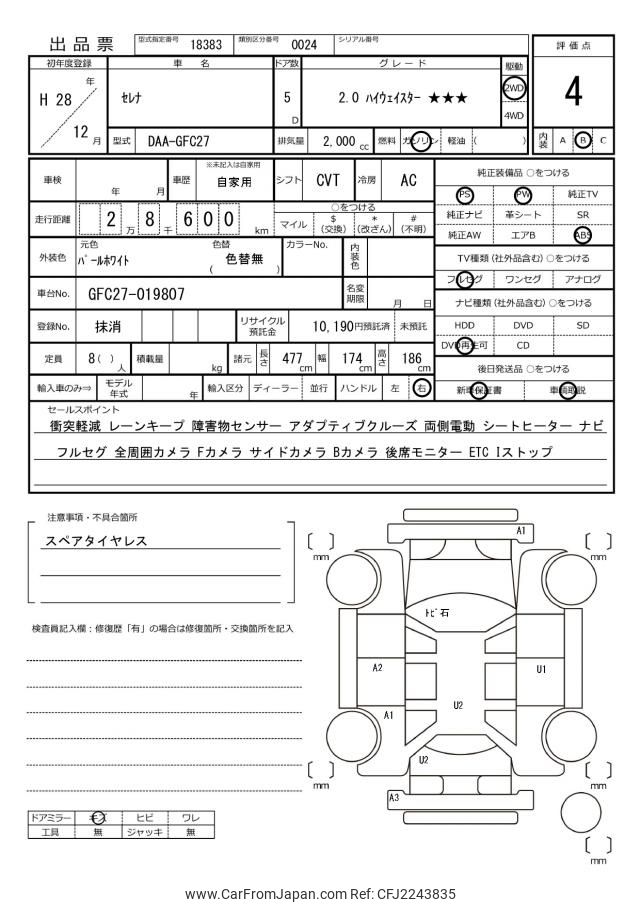 出品票 型式指定番号 18383 類別区分番号 0024 シリアル番号
評価点
4
内装 A B C
初年度登録 車 名 ドア数 グレード 駆動
H 28 年 12 月 セレナ 5 D 2.0 ハイウェイスター ★★★ 2WD 4WD
型式 DAA-GFC27 排気量 2,000 cc 燃料 ガソリン 軽油 ( )
車検 年 月 車歴 ※未記入は自家用 自家用 シフト CVT 冷房 AC
走行距離 2 万 8 千 6 0 0 km
○をつける
マイル $ (交換) * (改ざん) # (不明)
外装色 元色 パールホワイト 色替 ( 色替無 ) カラーNo. 内装色
車台No. GFC27-019807 名変期限 月 日
登録No. 抹消 リサイクル預託金 10,190円預託済 未預託
定員 8( ) 人 積載量 kg 諸元 長さ 477 cm 幅 174 cm 高さ 186 cm
輸入車のみ⇒ モデル年式 年 輸入区分 ディーラー 並行 ハンドル 左 右
純正装備品 ○をつける
PS PW 純正TV
純正ナビ 革シート SR
純正AW エアB ABS
TV種類(社外品含む) ○をつける
フルセグ ワンセグ アナログ
ナビ種類(社外品含む) ○をつける
HDD DVD SD
DVD再生可 CD
後日発送品 ○をつける
新車保証書 車輌取説
セールスポイント
衝突軽減 レーンキープ 障害物センサー アダプティブクルーズ 両側電動 シートヒーター ナビ
フルセグ 全周囲カメラ Fカメラ サイドカメラ Bカメラ 後席モニター ETC Iストップ
注意事項・不具合箇所
スペアタイヤレス
検査員記入欄：修復歴「有」の場合は修復箇所・交換箇所を記入
A1
mm mm
トビ石
A2 U1
U2
A1
U2
mm mm
A3
mm
ドアミラー キズ ヒビ ワレ
工具 無 ジャッキ 無
www.CarFromJapan.com Ref: CFJ2243835